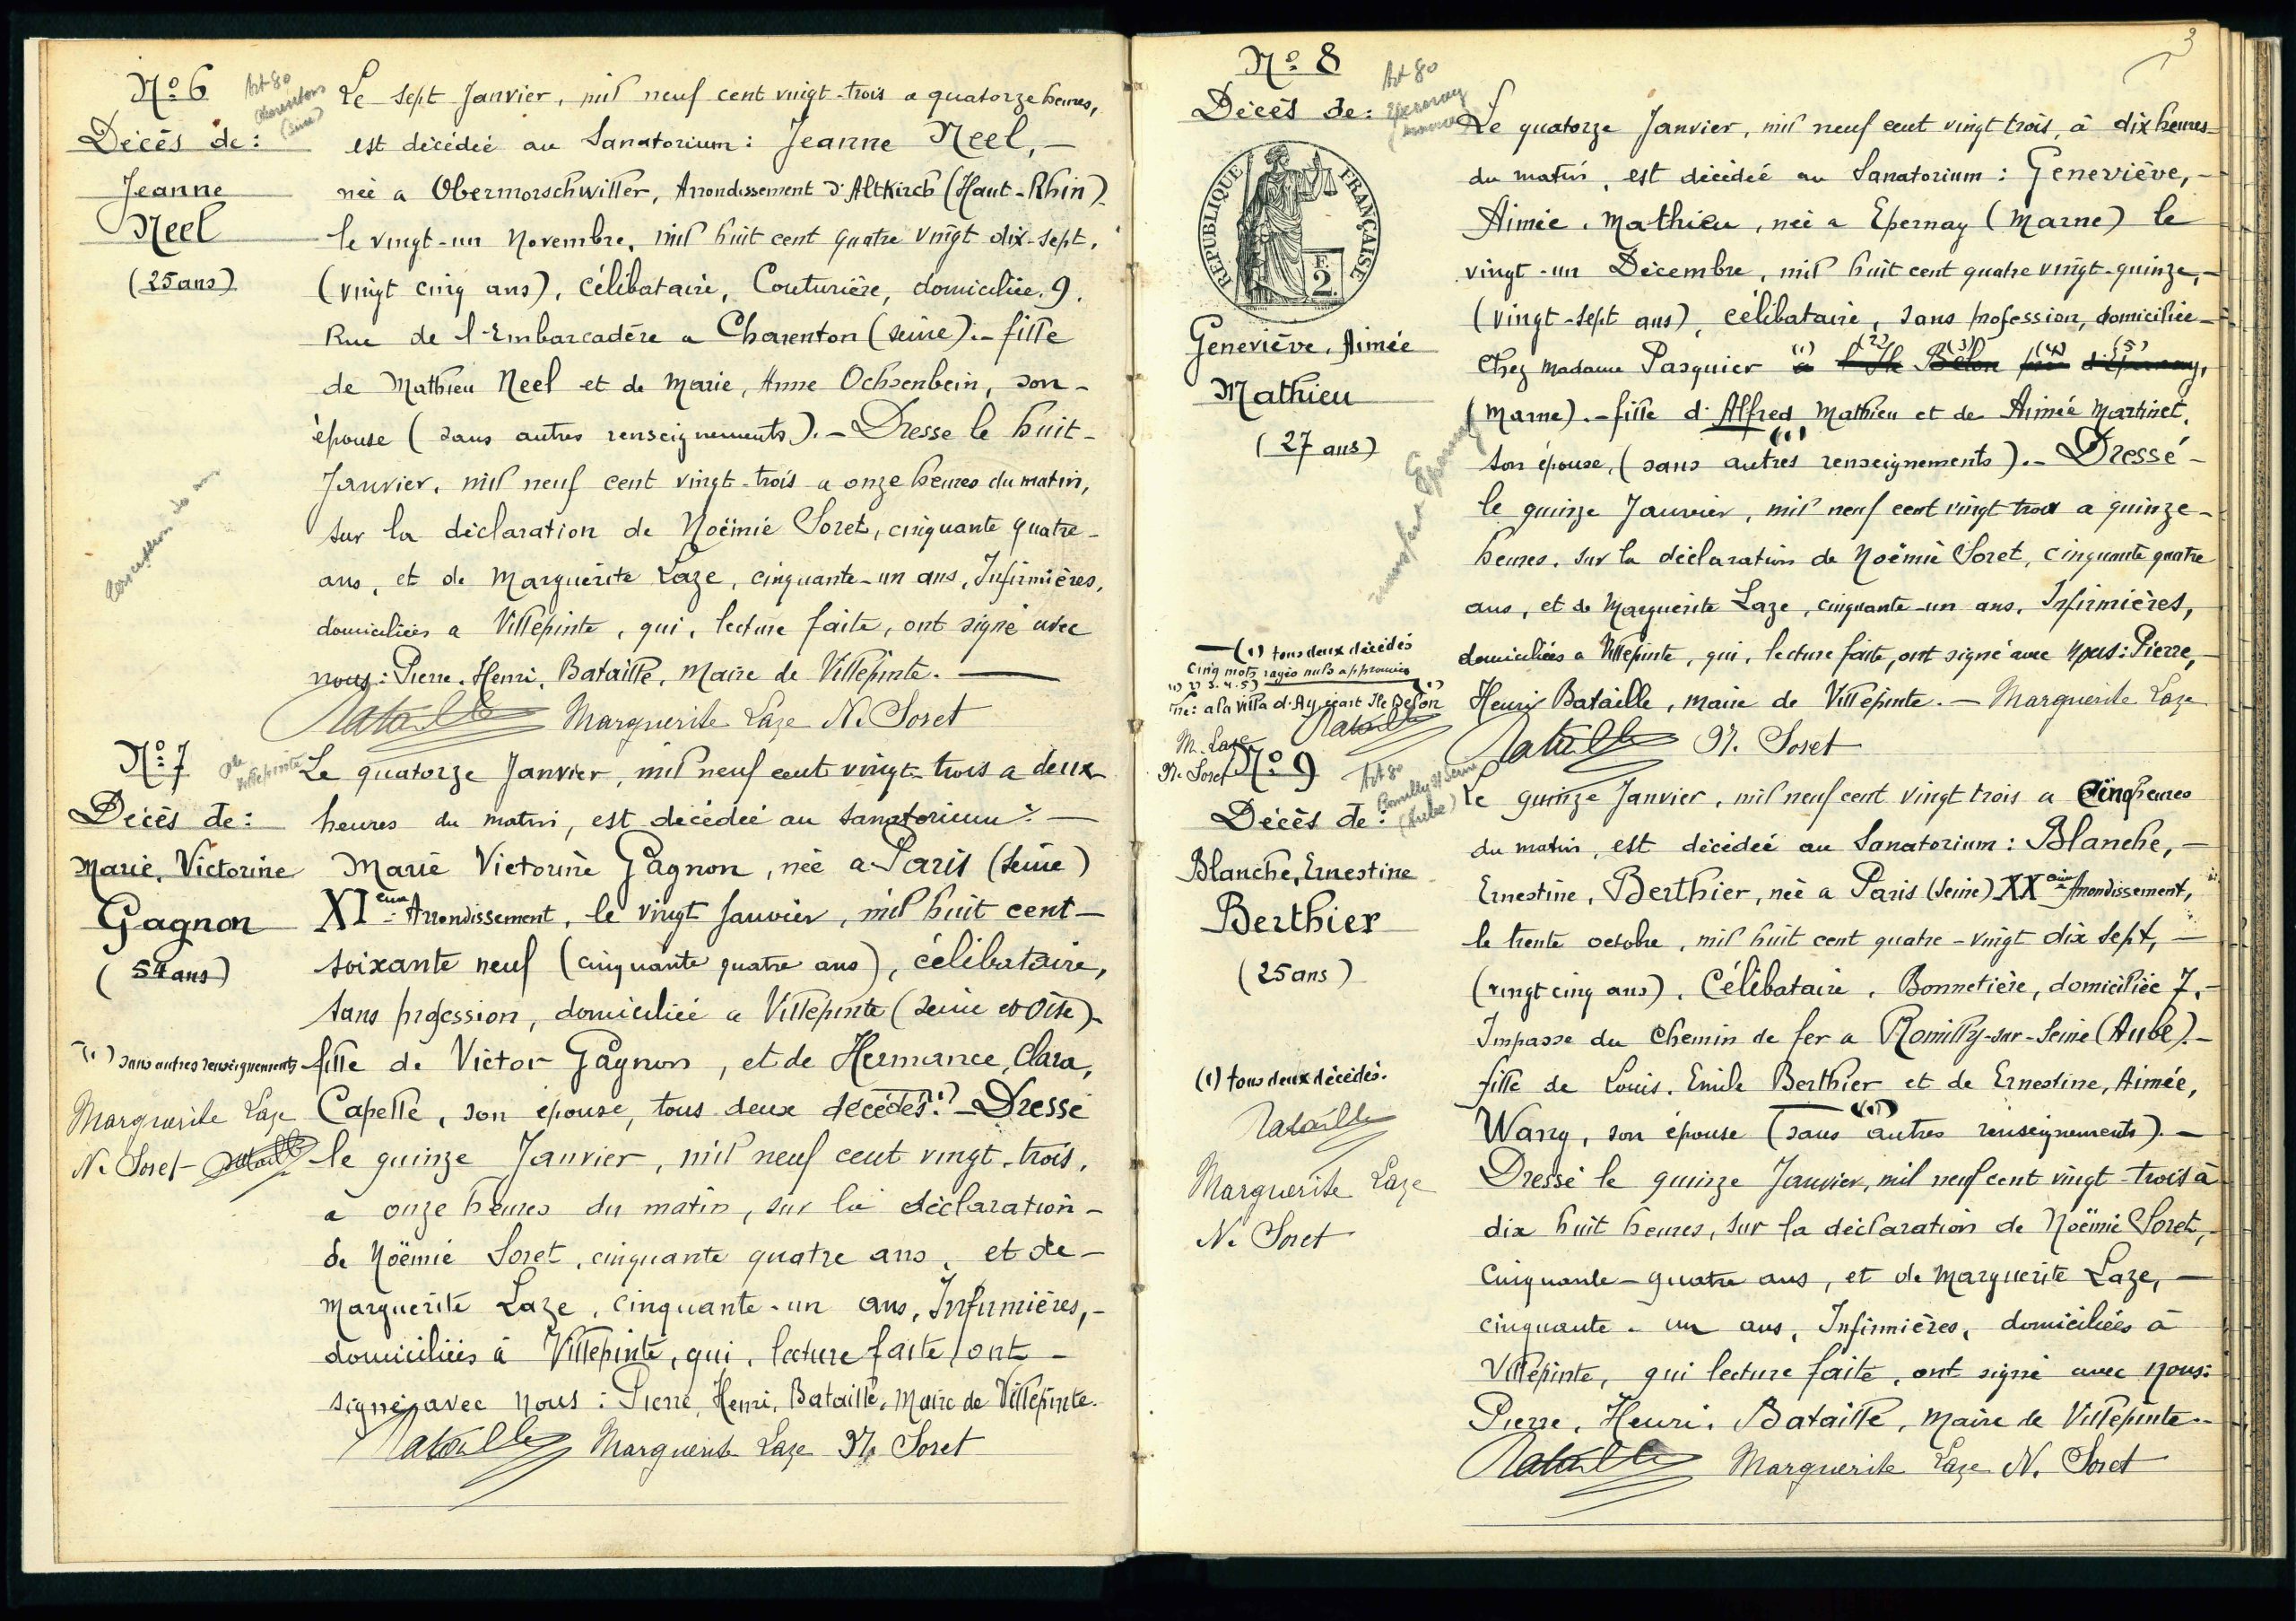 Nº 6
Art 80
Charenton
(Seine)
Décès de:
Jeanne
Neel
(25 ans)
Le sept Janvier, mil neuf cent vingt-trois a quatorze heures,
est décédée au Sanatorium: Jeanne Neel, —
née a Obermorschwiller, Arrondissement d'Altkirch (Haut-Rhin)
le vingt-un Novembre, mil huit cent quatre vingt dix-sept,
(vingt cinq ans), Célibataire, Couturière, domiciliée. 9.
Rue de l'Embarcadère a Charenton (Seine).- fille
de Mathieu Neel et de Marie, Anne Ochsenbein, son-
épouse (sans autres renseignements).- Dressé le huit-
Janvier, mil neuf cent vingt-trois a onze heures du matin,
sur la déclaration de Noëmie Soret, cinquante quatre-
ans, et de Marguerite Laze, cinquante-un ans, Infirmières,
domiciliées a Villepinte, qui, lecture faite, ont signé avec
nous: Pierre, Henri, Bataille, Maire de Villepinte. —
Bataille Marguerite Laze N. Soret
Nº 7
Villepinte
Décès de:
Marie, Victorine
Gagnon
(54 ans)
Le quatorze Janvier, mil neuf cent vingt-trois a deux
heures du matin, est décédée au Sanatorium: —
Marie Victorine Gagnon, née a Paris (Seine)
XIème Arrondissement, le vingt Janvier, mil huit cent-
soixante neuf (cinquante quatre ans), célibataire,
sans profession, domiciliée a Villepinte (Seine et Oise)-
fille de Victor Gagnon, et de Hermance, Clara,
Capelle, son épouse, tous deux décédés.(1) - Dressé
le quinze Janvier, mil neuf cent vingt-trois,
à onze heures du matin, sur la déclaration-
de Noëmie Soret, cinquante quatre ans, et de-
Marguerite Laze, cinquante-un ans, Infirmières,-
domiciliées à Villepinte, qui, lecture faite, ont-
signé avec nous: Pierre, Henri, Bataille, Maire de Villepinte.
Bataille Marguerite Laze N. Soret
(1) sans autres renseignements
Marguerite Laze
N. Soret Bataille
3
Nº 8
Art 80
Epernay
Marne
Décès de:
RÉPUBLIQUE FRANÇAISE
F.
2.
Geneviève, Aimée
Mathieu
(27 ans)
Le quatorze Janvier, mil neuf cent vingt trois, à dix heures-
du matin, est décédée au Sanatorium: Geneviève,-
Aimée, Mathieu, née a Epernay (Marne) le
vingt-un Décembre, mil huit cent quatre vingt-quinze,-
(vingt-sept ans), célibataire, sans profession, domiciliée-
Chez Madame Pasquier (1) à (2) l'Ile (3) Belon (4) près (5) d'Epernay,
(Marne).- fille d'Alfred Mathieu et de Aimée Martinet,
son épouse, (1) (sans autres renseignements).- Dressé-
le quinze Janvier, mil neuf cent vingt trois a quinze-
heures, sur la déclaration de Noëmie Soret, cinquante quatre
ans, et de Marguerite Laze, cinquante-un ans, Infirmières,
domiciliées a Villepinte, qui, lecture faite, ont signé avec nous: Pierre,
Henri Bataille, Maire de Villepinte.- Marguerite Laze
Bataille N. Soret
— (1) tous deux décédés
Cinq mots rayés nuls approuvés
(1) 2) 3. 4. 5)
à la Villa d'Ay, écart Ile Belon
M. Laze Bataille
N. Soret
Nº 9
Art 80
Romilly s/ Seine
(Aube)
Décès de:
Blanche, Ernestine
Berthier
(25 ans)
Le quinze Janvier, mil neuf cent vingt trois a Cinq heures
du matin, est décédée au Sanatorium: Blanche,-
Ernestine, Berthier, née a Paris (Seine) XXème Arrondissement,
le trente octobre, mil huit cent quatre-vingt dix sept,-
(vingt cinq ans), Célibataire, Bonnetière, domiciliée 7,-
Impasse du Chemin de fer a Romilly-sur-Seine (Aube).-
fille de Louis, Emile Berthier et de Ernestine, Aimée,
Wary, son épouse (1) (sans autres renseignements).-
Dressé le quinze Janvier, mil neuf cent vingt-trois à
dix huit heures, sur la déclaration de Noëmie Soret,-
Cinquante-quatre ans, et de Marguerite Laze,-
cinquante-un ans, Infirmières, domiciliées à
Villepinte, qui lecture faite, ont signé avec nous:
Pierre, Henri, Bataille, Maire de Villepinte.-
Bataille Marguerite Laze N. Soret
(1) tous deux décédés.
Bataille
Marguerite Laze
N. Soret